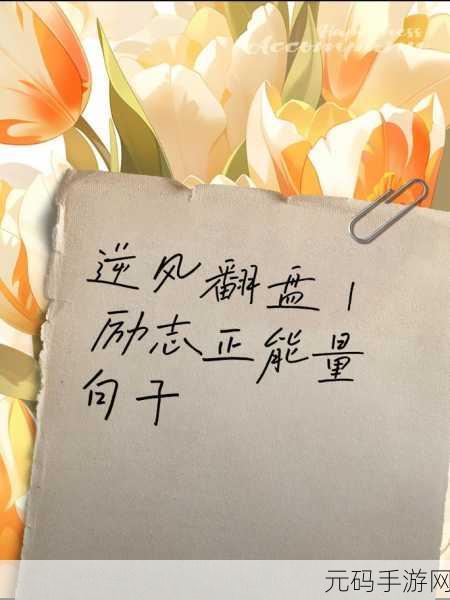 Happiness
Accompany
逆风翻盘|
励志正能量
句子
元码手游网